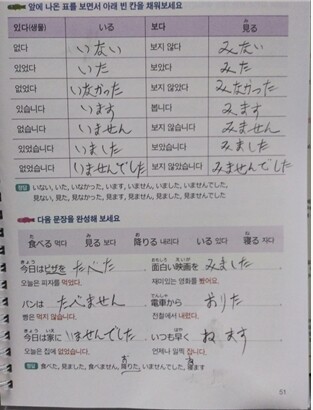 앞에 나온 표를 보면서 아래 빈 칸을 채워보세요
있다(생물) いる 보다 見る
없다 いない 보지 않다 みない
있었다 いた 보았다 みた
없었다 いなかった 보지 않았다 みなかった
있습니다 います 봅니다 みます
없습니다 いません 보지 않습니다 みません
있었습니다 いました 보았습니다 みました
없었습니다 いませんでした 보지 않았습니다 みませんでした
정답 いない, いた, いなかった, います, いません, いました, いませんでした
見ない, 見た, 見なかった, 見ます, 見ません, 見ました, 見ませんでした
다음 문장을 완성해 보세요
食べる 먹다 見る 보다 降りる 내리다 いる 있다 寝る 자다
今日はピザを たべた 面白い映画を みました
오늘은 피자를 먹었다. 재미있는 영화를 봤어요.
パンは たべません 電車から おりた
빵은 먹지 않습니다. 전철에서 내렸다.
今日は家に いませんでした いつも早く ねます
오늘은 집에 없었습니다. 언제나 일찍 잡니다.
정답 食べた, 見ました, 食べません, 降りた, いませんでした, 寝ます
51